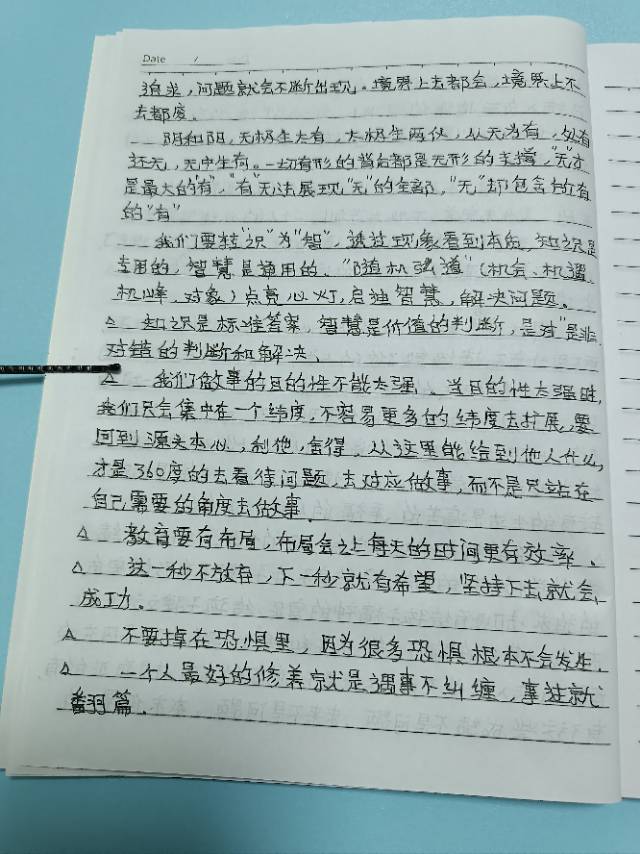 Date /
追求,问题就会不断出现。境界上去都会,境界上不
去都废。
阴和阳,无极生太有,太极生两仪,从无为有,处有
还无,无中生有。一切有形的背后都是无形的支撑,“无”才
是最大的“有”,“有”无法展现“无”的全部,“无”却包含所有
的“有”
我们要转“识”为“智”,透过现象看到本质,知识是
专用的,智慧是通用的、“随机强道”(机会、机遇、
机峰、对象)点亮心灯,启迪智慧,解决问题。
△ 知识是标准答案,智慧是价值的判断,是对“是非
对错的判断和解决、
△ 我们做事的目的性不能太强、当目的性太强时,
我们只会集中在一个纬度,不容易更多的纬度去扩展,要
回到源头本心,利他,舍得,从这里能给到他人什么,
才是360度的去看待问题,去对应做事,而不是只站在
自己需要的角度去做事。
△ 教育要有布局,布局会让每天的时间更有效率。
△ 这一秒不放弃,下一秒就有希望,坚持下去就会
成功。
△ 不要掉在恐惧里,因为很多恐惧根本不会发生。
△ 一个人最好的修养就是遇事不纠缠,事过就
翻篇。